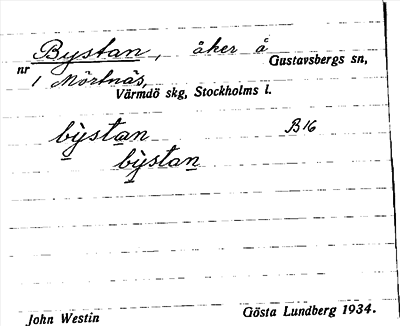 Bystan, åker å
Gustavsbergs sn,
nr 1 Mörtnäs,
Värmdö skg, Stockholms l.
by̍stan B16
by̍stan
John Westin Gösta Lundberg 1934.